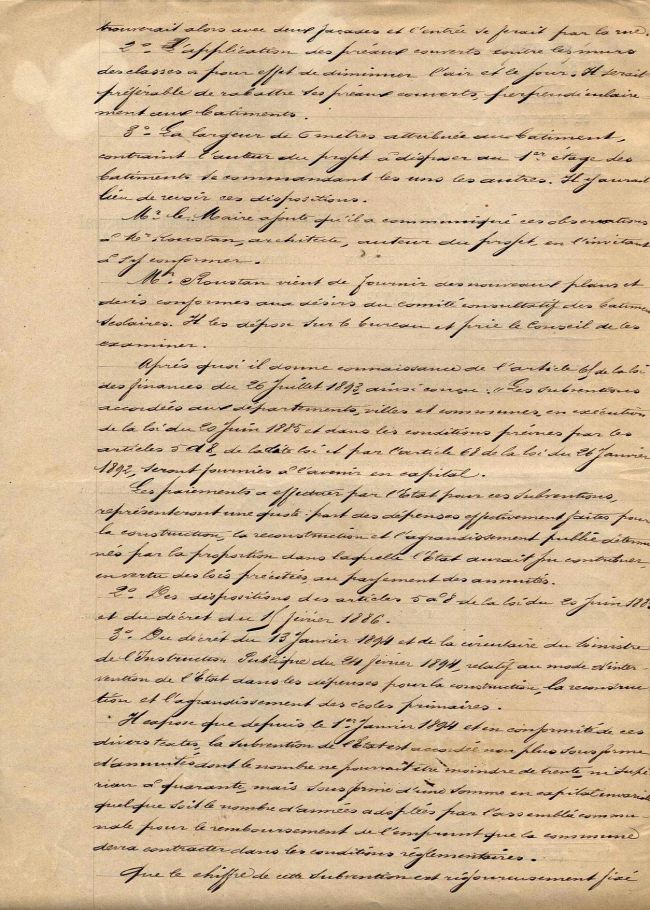 trouverait alors avec deux façades et l'entrée se ferait par la rue.
2° L'application des préaux couverts contre les murs
des classes a pour effet de diminuer l'air et le jour. Il serait
préférable de rabattre ses préaux couverts, perpendiculaire
ment aux batiments.
3° La largeur de 6 mètres attribuée au batiment,
contraint l'auteur du projet à disposer au 1er étage des
batiments se commandant les uns les autres. Il y aurait
lieu de revoir ces dispositions.
Mr le Maire ajoute qu'il a communiqué ces observations
à Mr Roustan, architecte, auteur du projet en l'invitant
à s'y conformer.
Mr Roustan vient de fournir des nouveaux plans et
devis conformes aux désirs du comité consultatif des batimen
scolaires. Il les dépose sur le bureau et prie le Conseil de les
examiner.
Après quoi il donne connaissance de l'article de la loi
des finances du 26 Juillet 1893, ainsi conçu : "Les subventions
accordées aux départements, villes et communes, en exécution
de la loi du 20 Juin 1885 et dans les conditions prévues par les
articles 5 à 8, de la loi et par l'article 68 de la loi du 26 Janvier
1892, seront fournies à l'avenir en capital.
Les paiements à effectuer par l'Etat pour ces subventions,
représenteront une quote-part des dépenses effectivement faites pour
la construction, la reconstruction et l'agrandissement publié détermi
nés par la proportion dans laquelle l'Etat aurait pu contribuer,
en vertu des lois précitées, au payement des annuités.
2° Des dispositions des articles 5 à 8 de la loi du 20 Juin 1885
et du décret du 15 février 1886.
3° Du décret du 13 Janvier 1894 et de la circulaire du Ministre
de l'Instruction Publique du 24 février 1894, relatif au mode d'inter
vention de l'Etat dans les dépenses pour la construction, la reconstruc
tion et l'agrandissement des écoles primaires.
Il expose que depuis le 1er Janvier 1894 et en conformité de ces
divers textes, la subvention de l'Etat est accordée non plus sous forme
d'annuités dont le nombre ne pourrait être moindre de trente, ni supé
rieur à quarante, mais sous forme d'une somme en capital invariable
quel que soit le nombre d'années adoptés par l'assemblé commu
nale pour le remboursement de l'emprunt que la commune
devra contracter dans les conditions réglementaires.
Que le chiffre de cette subvention est rigoureusement fixé